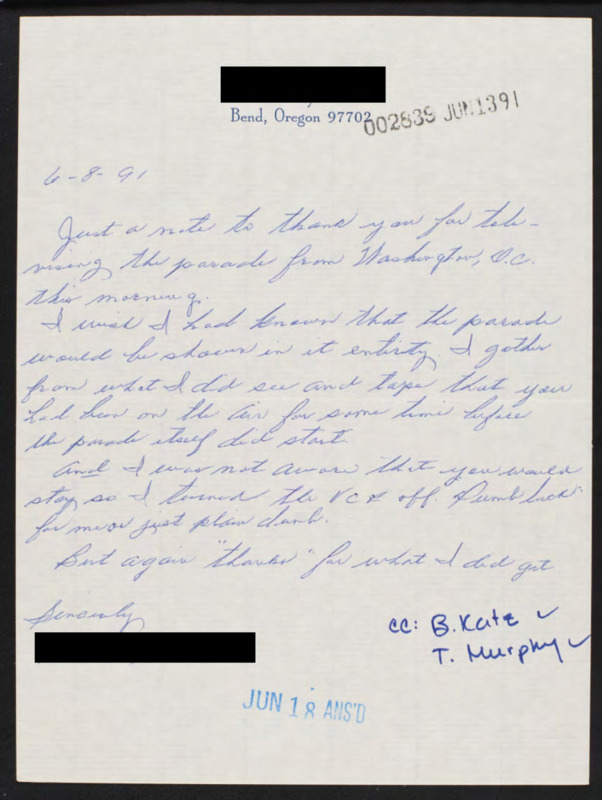 Bend, Oregon 97702
002839 JUN1391
6-8-91
Just a note to thank you for tele-
vising the parade from Washington, D.C.
this morning.
I wish I had known that the parade
would be shown in it entirty. I gather
from what I did see and tape that you
had been on the air for some time before
the parade itself did start
And I was not aware that you would
stay so I turned the VCR off. Dumb luck
for me or just plain dumb.
But again "thanks" for what I did get
Sincerely
cc: B. Katz ✓
T. Murphy ✓
JUN 18 ANS'D